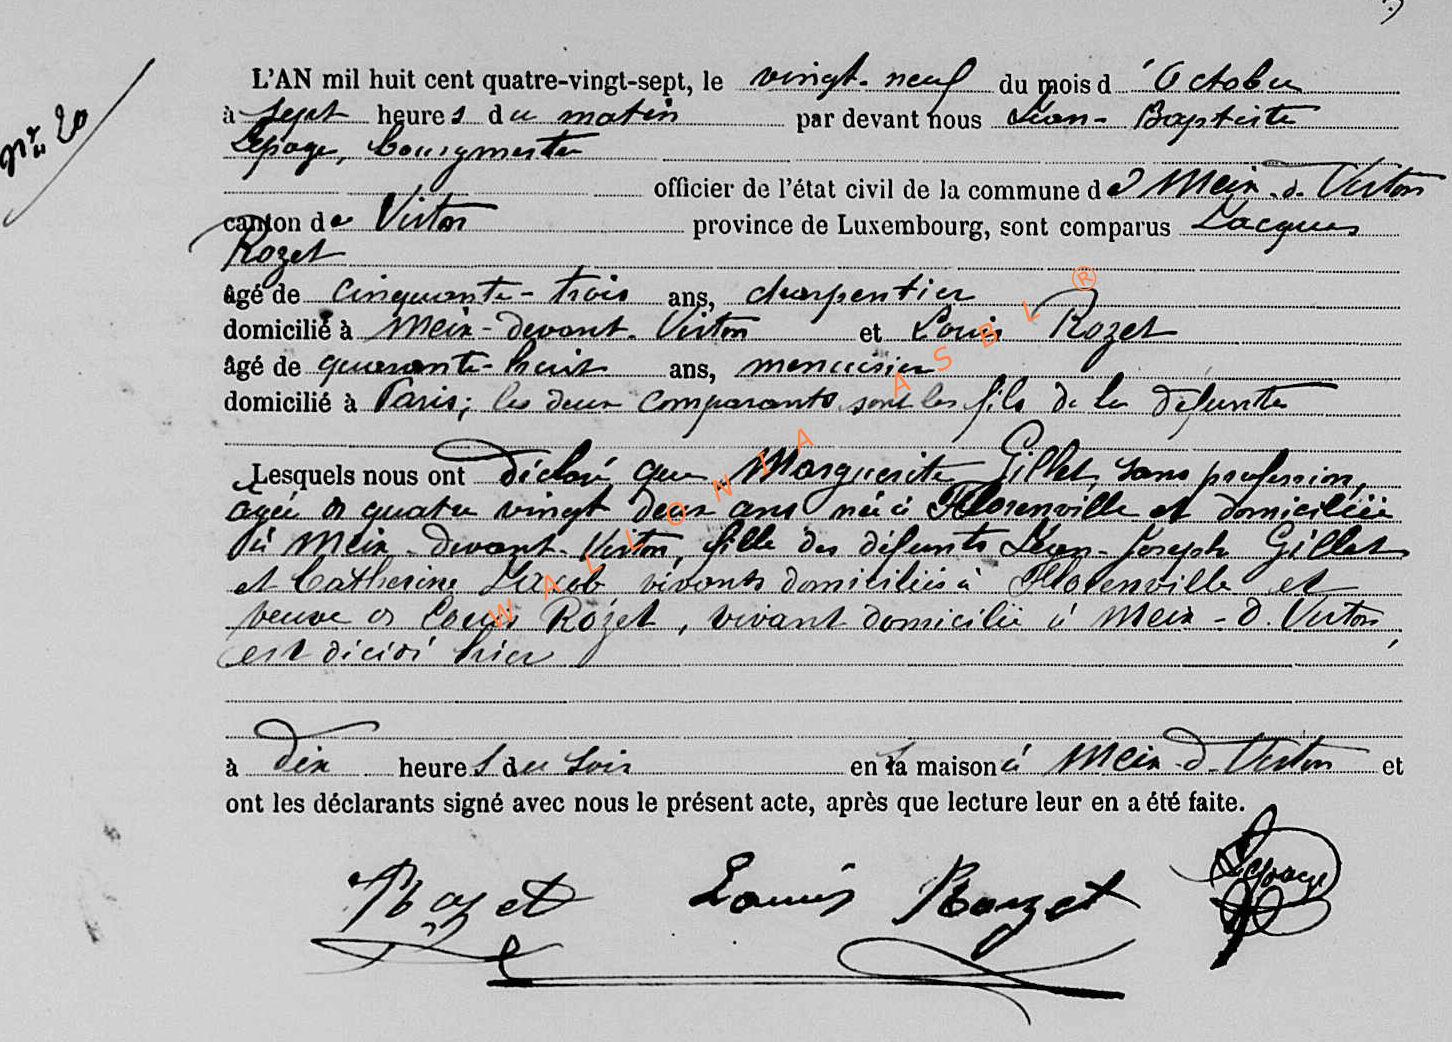 N° 20
L'AN mil huit cent quatre-vingt-sept, le vingt-neuf du mois d'Octobre
à sept heures du matin par devant nous Jean-Baptiste
Lepage, bourgmestre
officier de l'état civil de la commune de Meix-d-Virton
canton de Virton province de Luxembourg, sont comparus Jacques
Rozet
âgé de cinquante-trois ans, charpentier
domicilié à Meix-devant-Virton et Louis Rozet
âgé de quarante-huit ans, menuisier
domicilié à Paris; les deux comparants sont les fils de la défunte
Lesquels nous ont déclaré que Marguerite Gillet, sans profession,
âgée de quatre vingt deux ans née à Florenville et domiciliée
à Meix-devant-Virton, fille des défunts Jean-Joseph Gillet
et Catherine Jacob vivants domiciliés à Florenville et
veuve de Louis Rozet, vivant domicilié à Meix-d-Virton,
est décédé hier
à dix heures du soir en sa maison à Meix-d-Virton et
ont les déclarants signé avec nous le présent acte, après que lecture leur en a été faite.
Rozet Louis Rozet Lepage
WALLONIA ASBL ®